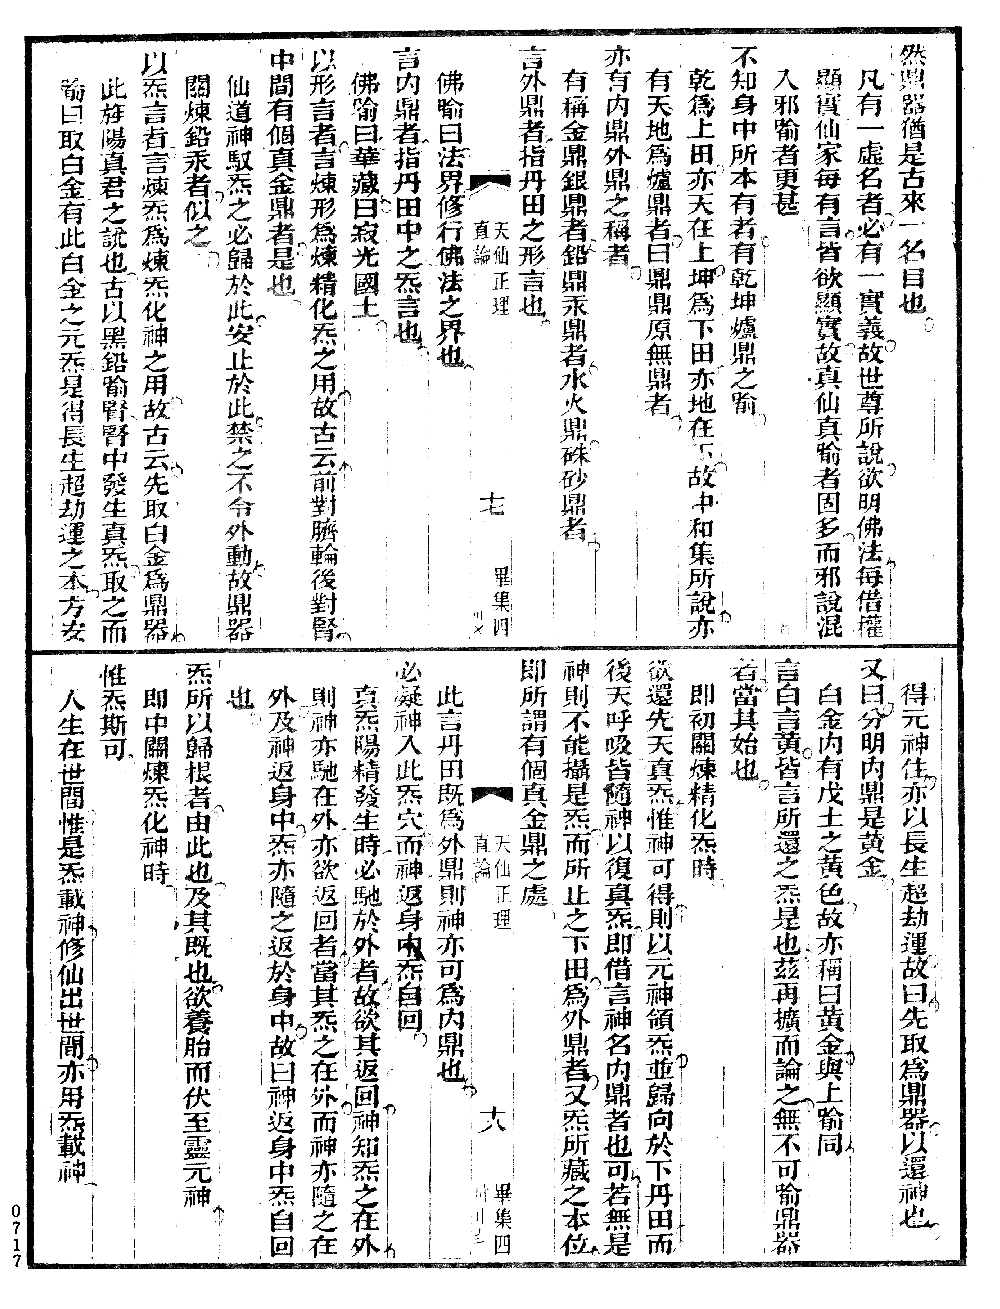 然鼎器猶是古來一名目也
凡有一虛名者必有一實義故世尊所說欲明佛法每借權
顯實仙家每有言皆欲顯實故真仙真喻者固多而邪說混
入邪喻者更甚
不知身中所本有者有乾坤爐鼎之喻
乾爲上田亦天在上坤爲下田亦地在下故中和集所說亦
有天地爲爐鼎者曰鼎鼎原無鼎者
亦有內鼎外鼎之稱者
有稱金鼎銀鼎者鉛鼎汞鼎者水火鼎硃砂鼎者
言外鼎者指丹田之形言也
天仙正理
直論
十七
畢集四
佛喻曰法界修行佛法之界也
言內鼎者指丹田中之炁言也
佛喻曰華藏曰寂光國土
以形言者言煉形爲煉精化炁之用故古云前對臍輪後對腎
中間有個真金鼎者是也
仙道神馭炁之必歸於此安止於此禁之不令外動故鼎器
關煉鉛汞者似之
以炁言者言煉炁爲煉炁化神之用故古云先取白金爲鼎器
此旌陽真君之說也古以黑鉛喻腎腎中發生真炁取之而
喻曰取白金有此白金之元炁是得長生超劫運之本方安
得元神住亦以長生超劫運故曰先取爲鼎器以還神也
又曰分明內鼎是黃金
白金內有戊土之黃色故亦稱曰黃金與上喻同
言白言黃皆言所還之炁是也茲再擴而論之無不可喻鼎器
者當其始也
即初關煉精化炁時
欲還先天真炁惟神可得則以元神領炁並歸向於下丹田而
後天呼吸皆隨神以復真炁即借言神名內鼎者也可若無是
神則不能攝是炁而所止之下田爲外鼎者又炁所藏之本位
即所謂有個真金鼎之處
天仙正理
直論
十八
畢集四
此言丹田既爲外鼎則神亦可爲內鼎也
必凝神入此炁穴而神返身中炁自回
真炁陽精發生時必馳於外者故欲其返回神知炁之在外
則神亦馳在外亦欲返回者當其炁之在外而神亦隨之在
外及神返身中炁亦隨之返於身中故曰神返身中炁自回
也
炁所以歸根者由此也及其既也欲養胎而伏至靈元神
即中關煉炁化神時
惟炁斯可
人生在世間惟是炁載神修仙出世間亦用炁載神
0717